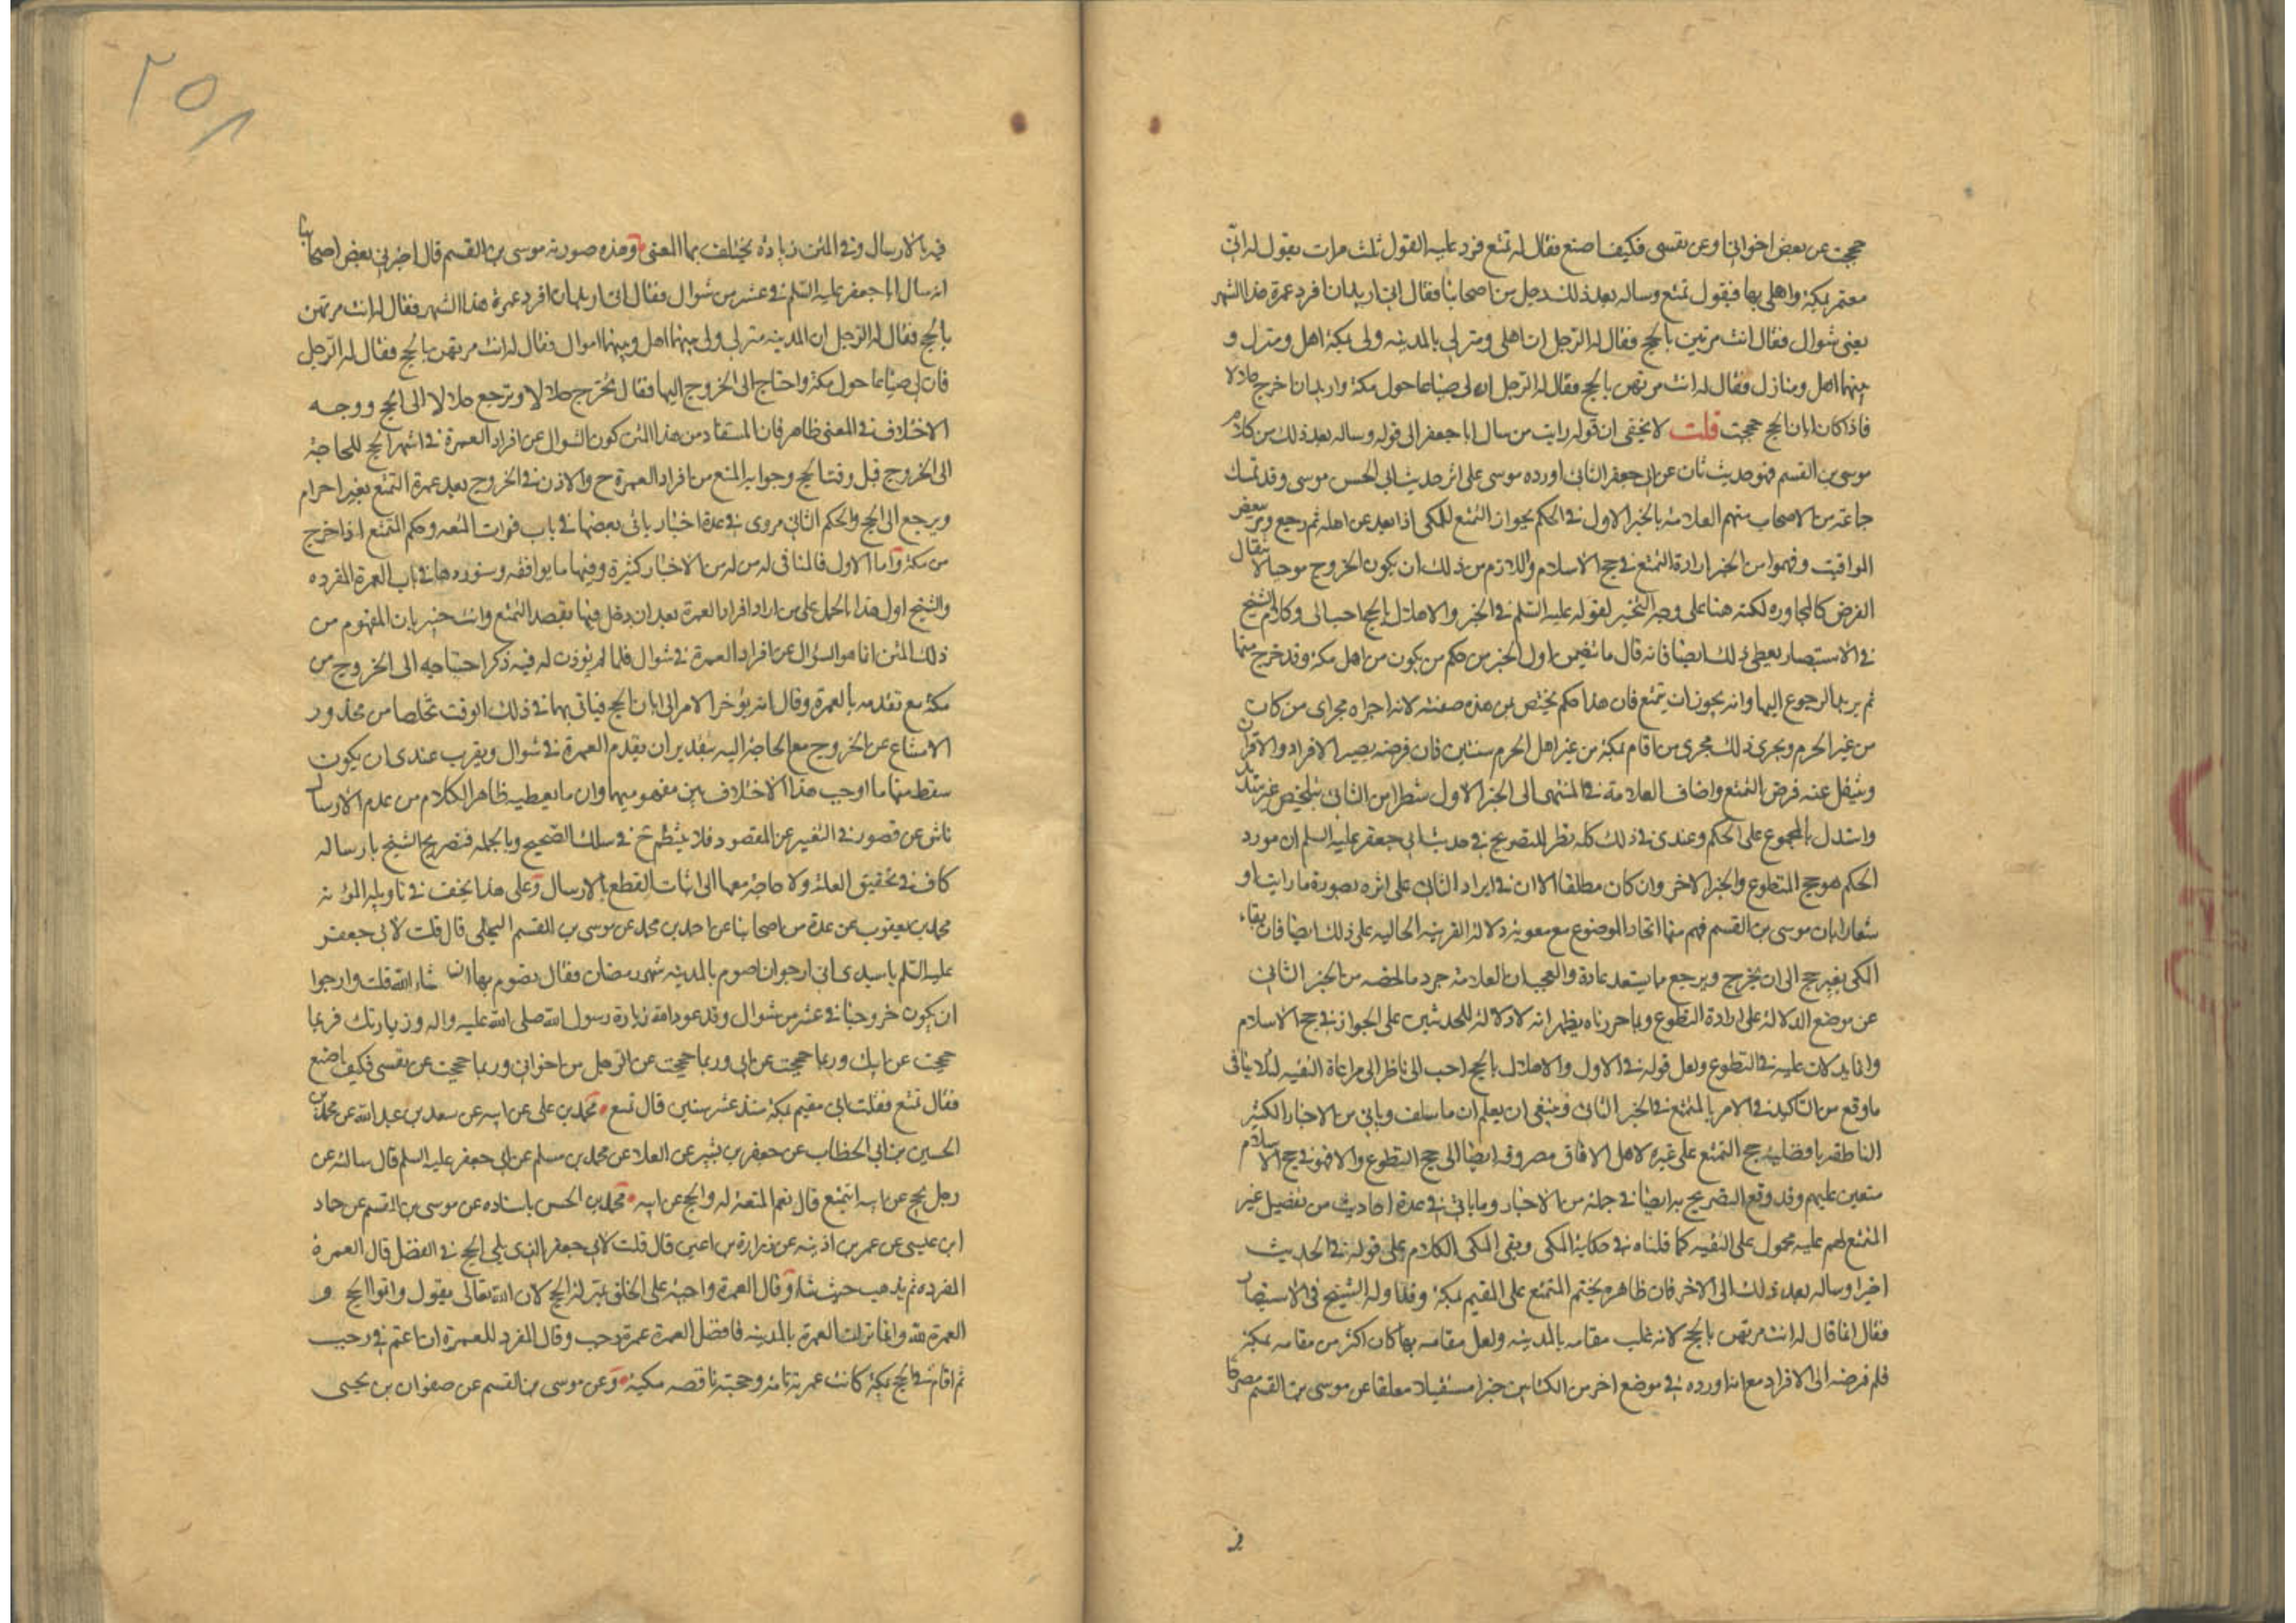 حججت عن بعض اخوانى او عن نفسى فكيف اصنع فقال له تمتع فرد عليه القول ثلث مرات يقول له انى
معتمر بمكة واهلى بها فيقول تمتع وساله بعد ذلك رجل من اصحابنا فقال انى اريد ان افرد عمرة هذا الشهر
يعنى شوال فقال انت مرتهن بالحج فقال له الرجل ان اهلى ومنزلى بالمدينه ولى بمكة اهل ومنزل و
بينهما اهل ومنازل فقال له انت مرتهن بالحج فقال له الرجل ان لى ضياعا حول مكة واريد ان اخرج حلالا
فاذا كان ابان الحج حججت قلت لا يخفى ان قوله رايت من سال ابا جعفر الى قوله وساله بعد ذلك من كلام
موسى بن القسم فهو حديث ثان عن ابى جعفر الثانى اورده موسى على اثر حديث ابى الحسن موسى وقد تمسك
جماعة من الاصحاب منهم العلامه بالخبر الاول فى الحكم بجواز التمتع للمكى اذا بعد عن اهله ثم رجع ومر ببعض
المواقيت وفهموا من الخبر ارادة التمتع فى حج الاسلام واللازم من ذلك ان يكون الخروج موجبا لانتقال
الفرض كالمجاوره لكنه هنا على وجه التخيير لقوله عليه السلم فى الخبر والاهلال بالحج احب الى وكلام الشيخ
فى الاستبصار يعطى ذلك ايضا فانه قال ما تضمن اول الخبر من حكم من يكون من اهل مكة وقد خرج منها
ثم يريد الرجوع اليها وانه يجوز ان يتمتع فان هذا حكم يختص بمن هذه صفته لانه اجراه مجرى من كان
من غير الحرم ويجرى ذلك مجرى من اقام بمكة من غير اهل الحرم سنتين فان فرضه يصير الافراد والاقران
وينتقل عنه فرض التمتع واضاف العلامة فى المنتهى الى الخبر الاول شطرا من الثانى بتلخيص غير
واستدل بالمجموع على الحكم وعندى فى ذلك كله نظر للتصريح فى حديث ابى جعفر عليه السلم ان مورد
الحكم هو حج المتطوع والخبر الاخر وان كان مطلقا الا ان فى ايراد الثانى على اثره بصورة ما رايت
شعارا بان موسى بن القسم فهم منهما اتحاد الموضوع مع معونة دلالة القرينه الحاليه على ذلك ايضا فان بقاء
المكى بغير حج الى ان يخرج ويرجع مما يستبعد عادة والعجب ان العلامة جرد ما لخصه من الخبر الثانى
عن موضع الدلالة على ارادة التطوع وبما حررناه يظهر انه لا دلالة للحديثين على الجواز فى حج الاسلام
وانما يدلان عليه فى التطوع ولعل قوله فى الاول والاهلال بالحج احب الى ناظر الى مراعاة التقيه لئلا ينافى
ما وقع من التاكيد فى الامر بالتمتع فى الخبر الثانى وينبغى ان يعلم ان ما سلف وياتى من الاخبار الكثيره
الناطقه بافضلية حج التمتع على غيره لاهل الافاق مصروفه ايضا الى حج التطوع والا فهو فى حج الاسلام
متعين عليهم وقد وقع التصريح به ايضا فى جملة من الاخبار وما ياتى فى عدة احاديث من تفضيل غير
التمتع لهم عليه محمول على التقيه كما قلناه فى حكاية المكى وبقى الكلام على قوله فى الحديث
اخيرا وساله بعد ذلك الى الاخر فان ظاهره يختم التمتع على المقيم بمكة وقد اوله الشيخ فى الاستبصار
فقال انما قال له انت مرتهن بالحج لانه غلب مقامه بالمدينه ولعل مقامه بها كان اكثر من مقامه بمكة
فلم فرضه الى الافراد مع انه اورده فى موضع اخر من الكتابين خبرا مستقيلا معلقا عن موسى بن القسم مصرحا
فى
٢٥٨
فيه بالارسال وفى المتن زيادة يختلف بها المعنى وهذه صورته موسى بن القسم قال اخبرنى بعض اصحابنا
انه سال ابا جعفر عليه السلم فى عشر من شوال فقال انى اريد ان افرد عمرة هذا الشهر فقال له انت مرتهن
بالحج فقال له الرجل ان المدينه منزلى ولى بينهما اهل وبينهما اموال فقال له انت مرتهن بالحج فقال له الرجل
فان لى ضياعا حول مكة واحتاج الى الخروج اليها فقال تخرج حلالا وترجع حلالا الى الحج ووجه
الاختلاف فى المعنى ظاهر فان المستفاد من هذا المتن كون السؤال عن افراد العمرة فى اشهر الحج للحاجة
الى الخروج قبل وقت الحج وجوابه المنع من افراد العمرة ح والاذن فى الخروج بعد عمرة التمتع بغير احرام
ويرجع الى الحج والحكم الثانى مروى فى عدة اخبار ياتى بعضها فى باب فوات المتعه وحكم المتمتع اذا خرج
من مكة واما الاول فالمنافى له من الاخبار كثيرة وفيها ما يوافقه وسنوردها فى باب العمرة المفرده
والشيخ اول هذا بالحمل على من اراد افراد العمرة بعد ان دخل فيها بقصد التمتع وانت خبير بان المفهوم من
ذلك المتن انما هو السؤال عن افراد العمرة فى شوال فلما لم يؤذن له فيه ذكر احتياجه الى الخروج من
مكة مع تقدمه بالعمرة وقال انه يؤخر الامر الى ابان الحج فياتى بهما فى ذلك الوقت تخلصا من محذور
الامتناع عن الخروج مع الحاجة اليه بتقدير ان يقدم العمرة فى شوال ويقرب عندى ان يكون
سقط منها ما اوجب هذا الاختلاف بين مفهوميهما وان ما يعطيه ظاهر الكلام من عدم الارسال
ناش عن قصور فى التعبير عن المقصود فلا ينتظم ح فى سلك الصحيح وبالجمله فتصريح الشيخ بارساله
كاف فى تحقيق العلة ولا حاجة معها الى اثبات القطع بالارسال وعلى هذا يخف فى تاويله المؤنه
محمد بن يعقوب عن عدة من اصحابنا عن احمد بن محمد عن موسى بن القسم البجلى قال قلت لابى جعفر
عليه السلم يا سيدى انى ارجو ان اصوم بالمدينه شهر رمضان فقال تصوم بها ان شاء الله قلت وارجوا
ان يكون خروجنا فى عشر من شوال وقد عود الله زيارة رسول الله صلى الله عليه واله وزيارتك فربما
حججت عن ابيك وربما حججت عن ابى وربما حججت عن الرجل من اخوانى وربما حججت عن نفسى فكيف اصنع
فقال تمتع فقلت انى مقيم بمكة منذ عشر سنين قال تمتع محمد بن على عن ابيه عن سعد بن عبد الله عن محمد بن
الحسين بن ابى الخطاب عن جعفر بن بشير عن العلاء عن محمد بن مسلم عن ابى جعفر عليه السلم قال سالته عن
رجل يحج عن ابيه ايتمتع قال نعم المتعة له والحج عن ابيه محمد بن الحسن باسناده عن موسى بن القسم عن حماد
ابن عيسى عن عمر بن اذينه عن زرارة بن اعين قال قلت لابى جعفر الذى يلى الحج فى الفضل قال العمرة
المفرده ثم يذهب حيث شاء وقال العمرة واجبة على الخلق بمنزلة الحج لان الله تعالى يقول واتموا الحج و
العمرة لله وانما نزلت العمرة بالمدينه فافضل العمرة عمرة رجب وقال المفرد للعمرة ان اعتمر فى رجب
ثم اقام فى الحج بمكة كانت عمرته تامة وحجته ناقصه مكية وعن موسى بن القسم عن صفوان بن يحيى